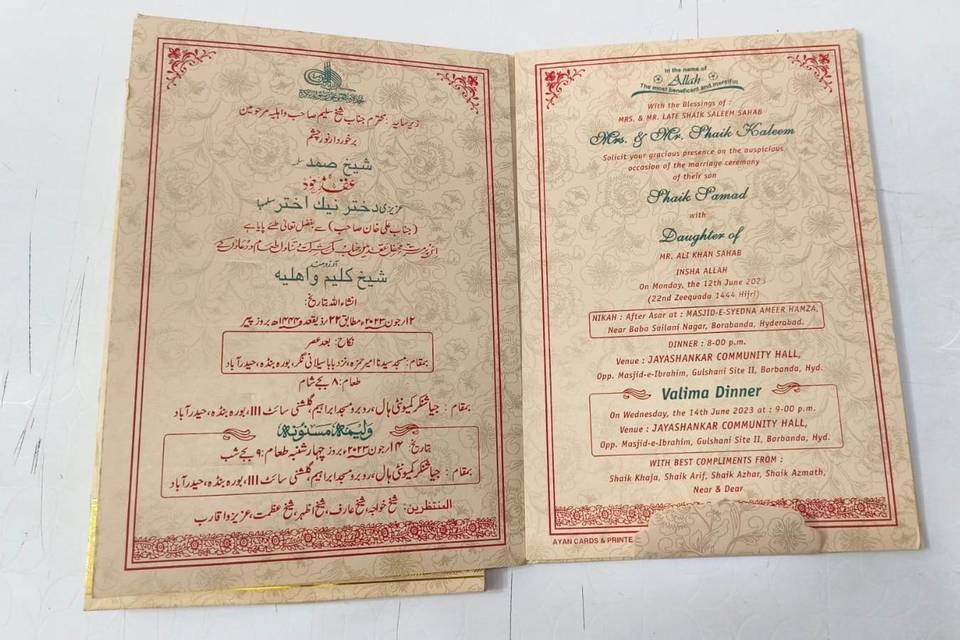 زیر سایہ: محترم جناب شیخ سلیم صاحب واہلیہ مرحومین
برخوردار نور چشم
شیخ صمد سلمہ
عقد مزد
عزیزی دختر نیک اختر سلمہا
(جناب علی خان صاحب) سے بفضل تعالیٰ طے پایا ہے
شیخ کلیم واہلیہ
انشاء اللہ بتاریخ:
۱۲/جون ۲۰۲۳ء مطابق ۲۲/ذیقعدہ ۱۴۴۴ھ بروز پیر
نکاح: بعد عصر
بمقام: مسجد سیدنا امیر حمزہ، نزد بابا سیلانی نگر، بورہ بنڈہ، حیدرآباد
طعام: ۸ بجے شام
بمقام: جیا شنکر کمیونٹی ہال، روبرو مسجد ابراہیم، گلشنی سائٹ III، بورہ بنڈہ، حیدرآباد
ولیمہ مسنونہ
بتاریخ: ۱۴/جون ۲۰۲۳ء بروز چہارشنبہ طعام: ۹ بجے شب
بمقام: جیا شنکر کمیونٹی ہال، روبرو مسجد ابراہیم، گلشنی سائٹ III، بورہ بنڈہ، حیدرآباد
المنتظرین: شیخ خواجہ، شیخ عارف، شیخ اظہر، شیخ عظمت، عزیز و اقارب
In the name of
Allah
The most beneficent and merciful
With the Blessings of :
MRS. & MR. LATE SHAIK SALEEM SAHAB
Mrs. & Mr. Shaik Kaleem
Solicit your gracious presence on the auspicious
occasion of the marriage ceremony
of their son
Shaik Samad
with
Daughter of
MR. ALI KHAN SAHAB
INSHA ALLAH
On Monday, the 12th June 2023
(22nd Zeequada 1444 Hijri)
NIKAH : After Asar at : MASJID-E-SYEDNA AMEER HAMZA,
Near Baba Sailani Nagar, Borabanda, Hyderabad.
DINNER : 8-00 p.m.
Venue : JAYASHANKAR COMMUNITY HALL,
Opp. Masjid-e-Ibrahim, Gulshani Site II, Borbanda, Hyd.
Valima Dinner
On Wednesday, the 14th June 2023 at : 9-00 p.m.
Venue : JAYASHANKAR COMMUNITY HALL,
Opp. Masjid-e-Ibrahim, Gulshani Site II, Borbanda, Hyd.
WITH BEST COMPLIMENTS FROM :
Shaik Khaja, Shaik Arif, Shaik Azhar, Shaik Azmath,
Near & Dear
AYAN CARDS & PRINTE